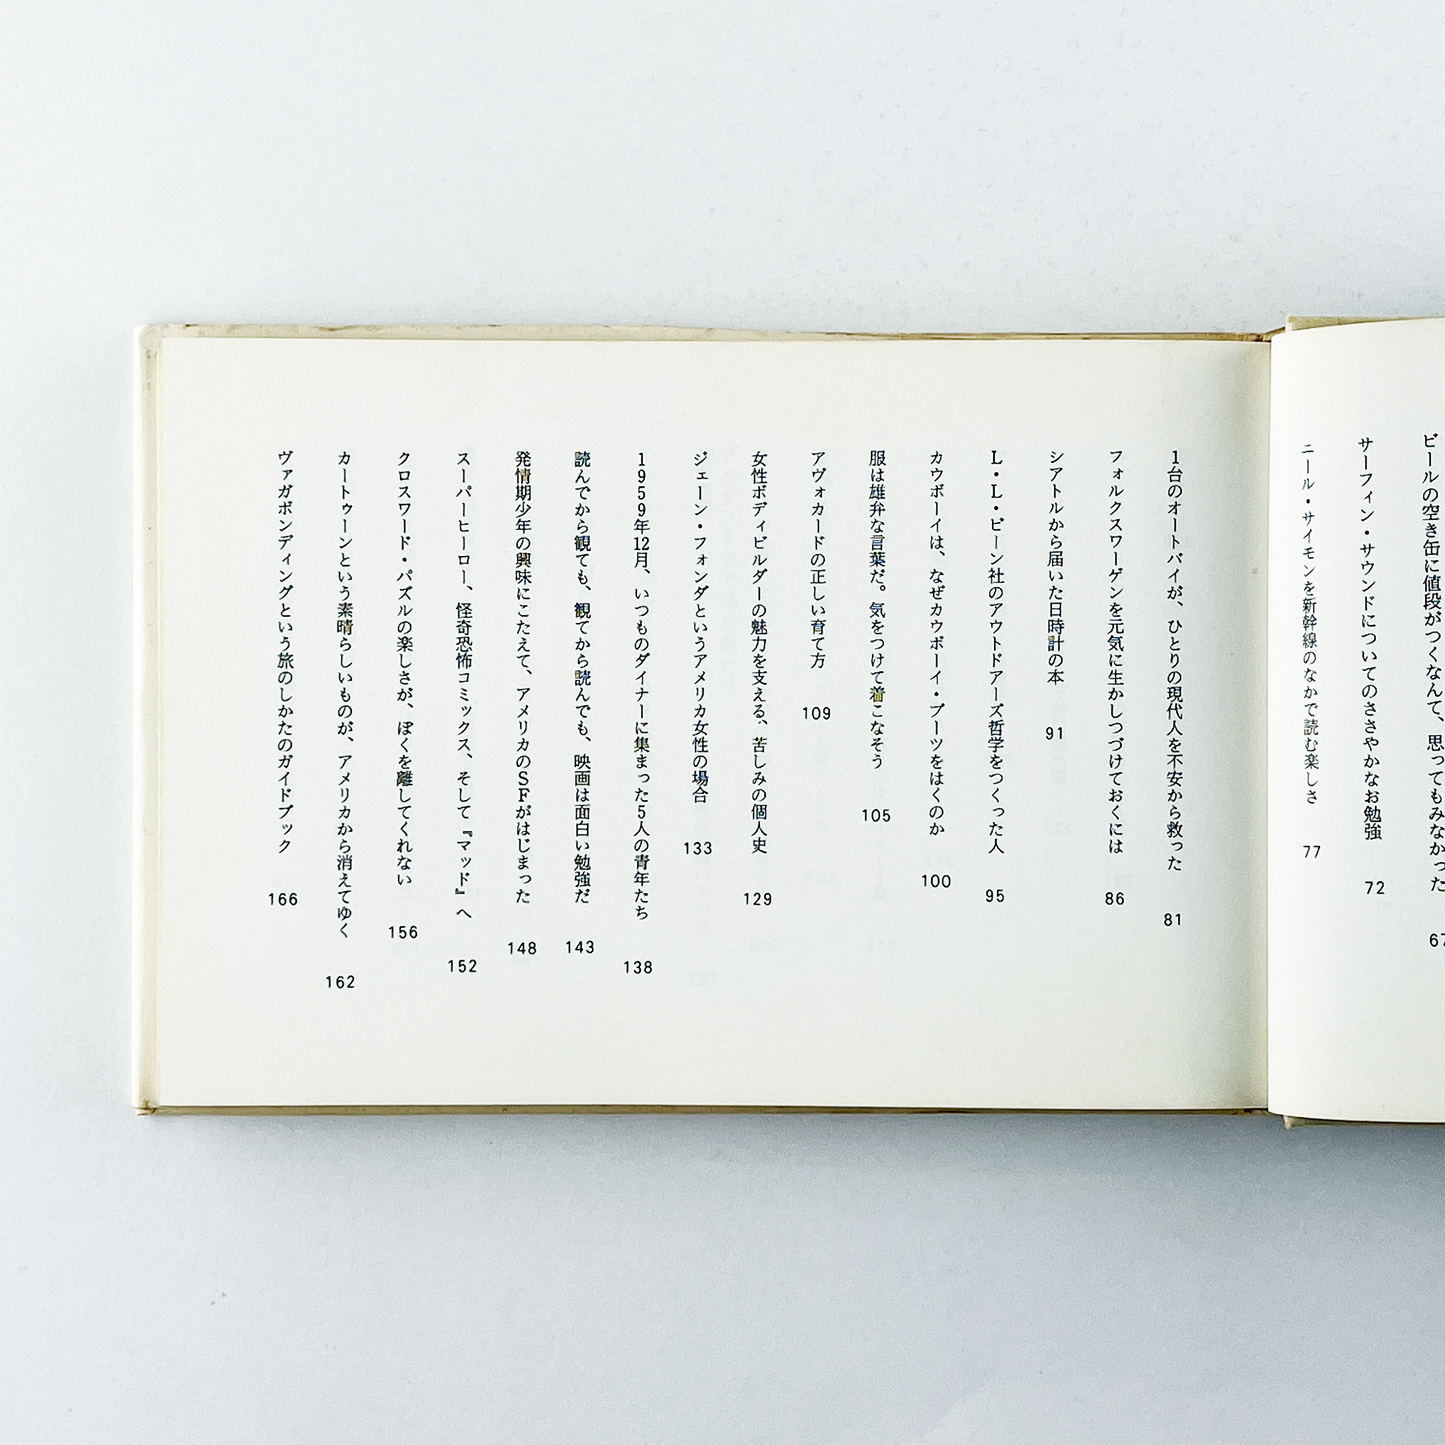 ビールの空き缶に値段がつくなんて、思ってもみなかった 67
サーフィン・サウンドについてのささやかなお勉強 72
ニール・サイモンを新幹線のなかで読む楽しさ 77
1台のオートバイが、ひとりの現代人を不安から救った 81
フォルクスワーゲンを元気に生かしつづけておくには 86
シアトルから届いた日時計の本 91
L・L・ビーン社のアウトドアーズ哲学をつくった人 95
カウボーイは、なぜカウボーイ・ブーツをはくのか 100
服は雄弁な言葉だ。気をつけて着こなそう 105
アヴォカードの正しい育て方 109
女性ボディビルダーの魅力を支える、苦しみの個人史 129
ジェーン・フォンダというアメリカ女性の場合 133
1959年12月、いつものダイナーに集まった5人の青年たち 138
読んでから観ても、観てから読んでも、映画は面白い勉強だ 143
発情期少年の興味にこたえて、アメリカのSFがはじまった 148
スーパーヒーロー、怪奇恐怖コミックス、そして『マッド』へ 152
クロスワード・パズルの楽しさが、ぼくを離してくれない 156
カートゥーンという素晴らしいものが、アメリカから消えてゆく 162
ヴァガボンディングという旅のしかたのガイドブック 166